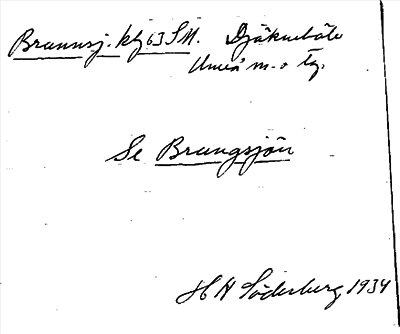 Brunnsj. kbg 63 SM. Djäkneböle
Umeå m. o tg.
Se Brungsjön
H H Söderberg 1934